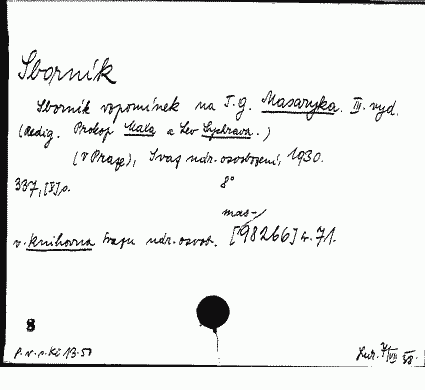 Sborník
Sborník vzpomínek na T. G. Masaryka. III. vyd.
(Redig. Prokop Maxa a Lev Sychrava.)
(V Praze), Svaz nár. osvobození, 1930.
337, [V] s. 8°
mas-/
v. knihovna Svazu nár. osvob. [98266] č. 71.
8
P. v. s. Kč 13.50